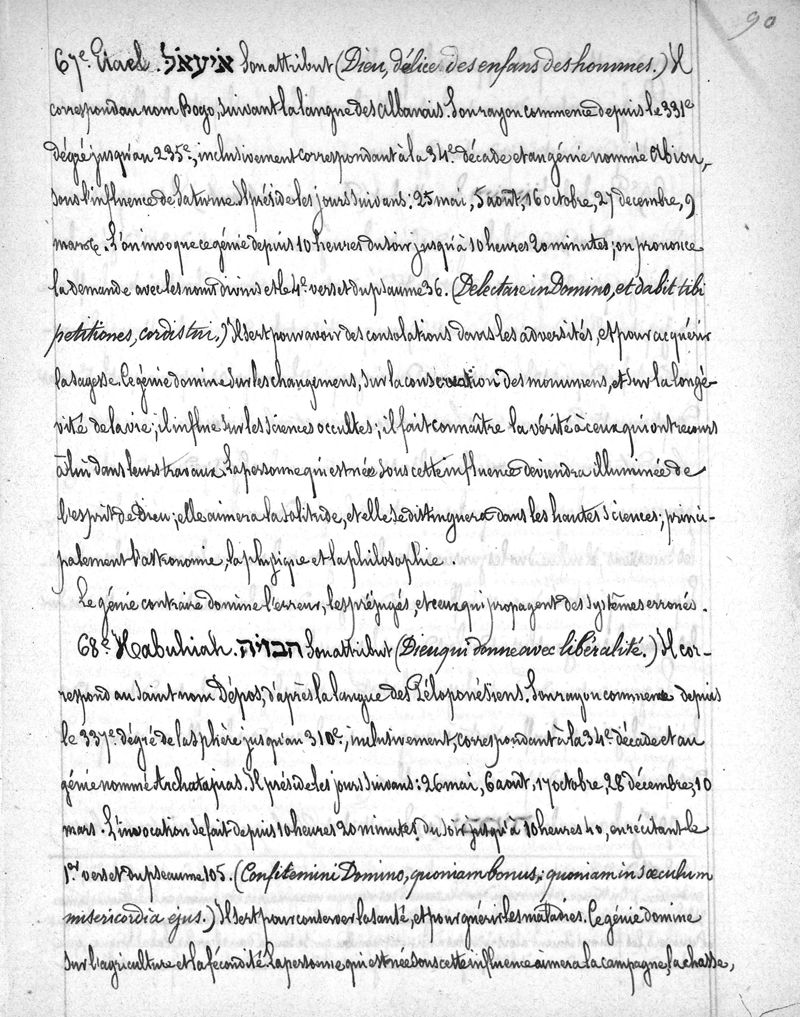 90
67e. Eiael. איעאל Son attribut (Dieu, délice des enfans des hommes.) Il
correspond au nom Bogo, suivant la langue des Albanais. Son rayon commence depuis le 331e
dégré jusqu'au 235e, inclusivement correspondant à la 34e. décade et au génie nommé Abion,
sous l'influence de Saturne Il préside les jours suivans: 25 mai, 5 août, 16 octobre, 27 decembre, 9
mars. L'on invoque ce génie depuis 10 heures du soir jusqu'à 10 heures 20 minutes; on prononce
la demande avec les noms divins et le 4e. verset du psaume 36. (Delectare in Domino, et dabit tibi
petitiones, cordis tui.) Il sert pour avoir des consolations dans les adversités, et pour acquérir
la sagesse. Ce génie domine sur les changemens, sur la conservation des monumens, et sur la longé-
vité de la vie; il influe sur les sciences occultes; il fait connaître la vérité à ceux qui ont recours
à lui dans leurs travaux. La personne qui est née sous cette influence deviendra illuminée de
l'esprit de Dieu; elle aimera la solitude, et elle se distinguera dans les hautes sciences; princi-
palement l'astronomie, la physique et la philosophie.
Le génie contraire domine l'erreur, les préjugés, et ceux qui propagent des systèmes erronés.
68e. Habuhiah. הבויה Son attribut (Dieu qui donne avec libéralité.) Il cor-
respond au saint nom Dépos, d'après la langue des Péloponésiens. Son rayon commence depuis
le 337e. dégré de la sphère jusqu'au 310e., inclusivement, correspondant à la 34e. décade et au
génie nommé Archatapias. Il préside les jours suivans: 26 mai, 6 août, 17 octobre, 28 décembre, 10
mars. L'invocation se fait depuis 10 heures 20 minutes du soir jusqu'à 10 heures 40, en récitant le
1er verset du pseaume 105. (Confitemini Domino, quoniam bonus; quoniam in sæculum
misericordia ejus.) Il sert pour conserver la santé, et pour guérir les malaires. Ce génie domine
sur l'agriculture et la fécondité. La personne qui est née sous cette influence aimera la campagne, la chasse,